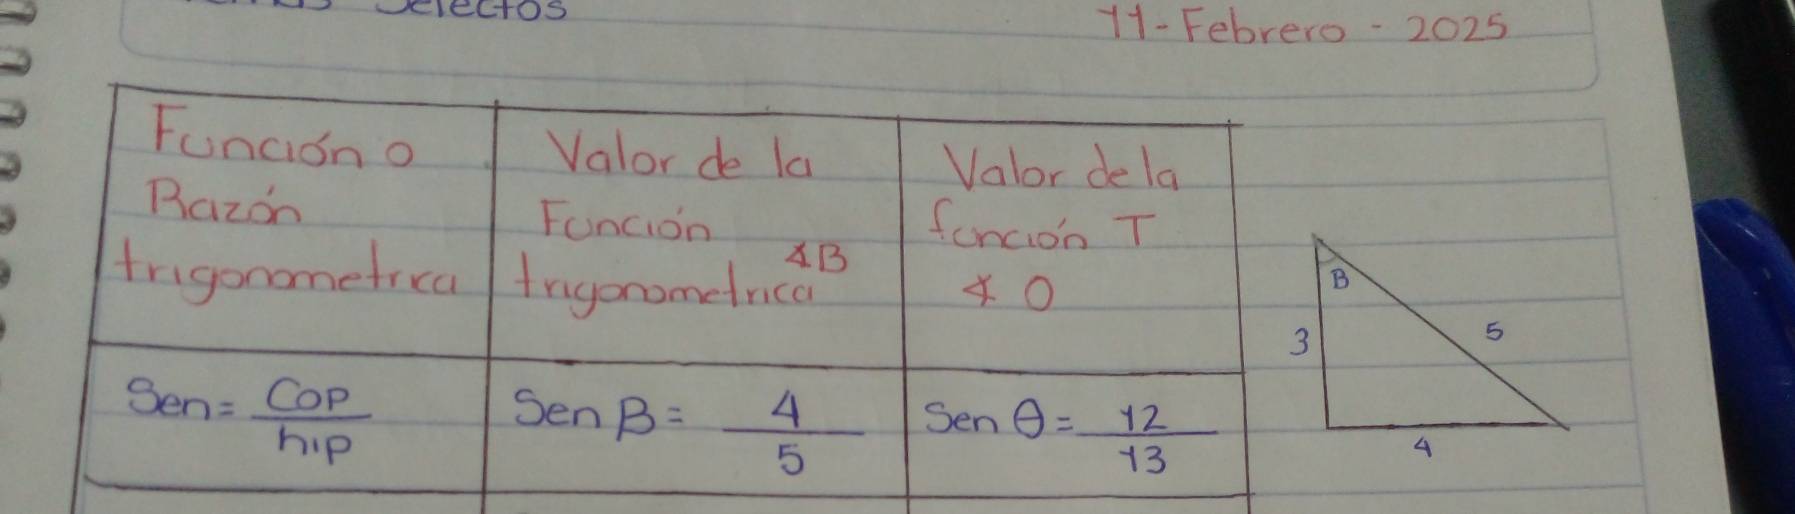 Selectos
11-Febrero-2025
Función o
Razón
trigonometrica
Valor de la
Función
trigonometrica ∡B
Valor de la
función T
∡ O
Sen = Cop
hip
Sen β = 4
5
Sen θ = 12
13
B
3
5
4